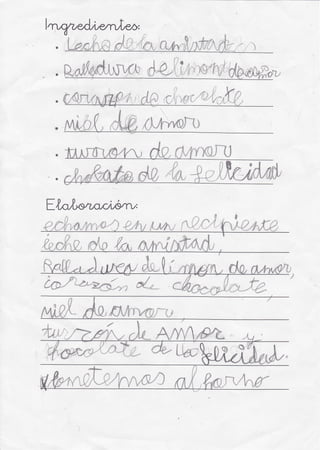 Ingredientes:
• Leche de la amistad
• Ralladura de limón de amor
• corazon de chocolate
• miel de amor
• turron de amor
• chocolate de la felicidad
Elaboración:
echamos en un recipiente
leche de la amistad,
Ralladura de limon de amor,
corazón de chocolate,
miel de amor,
turrón de AMor y
chocolate de la felicidad.
Y lo metemos al horno